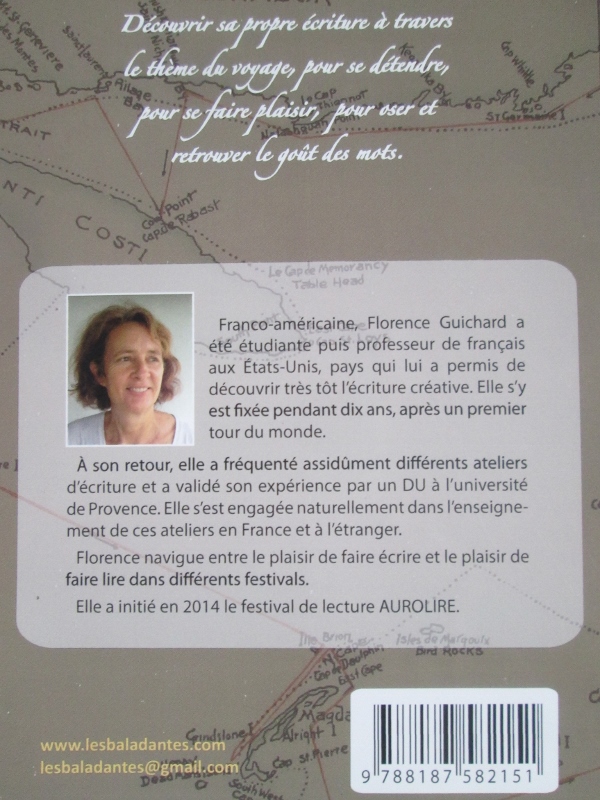 Découvrir sa propre écriture à travers
le thème du voyage, pour se détendre,
pour se faire plaisir, pour oser et
retrouver le goût des mots.
TRAIT
Cap Whittle
St Germaine I
ANTI
COSTI
Cap de Rabast
Le Cap de Memorancy
Table Head
Franco-américaine, Florence Guichard a
été étudiante puis professeur de français
aux États-Unis, pays qui lui a permis de
découvrir très tôt l'écriture créative. Elle s'y
est fixée pendant dix ans, après un premier
tour du monde.
À son retour, elle a fréquenté assidûment différents ateliers
d'écriture et a validé son expérience par un DU à l'université
de Provence. Elle s'est engagée naturellement dans l'enseigne-
ment de ces ateliers en France et à l'étranger.
Florence navigue entre le plaisir de faire écrire et le plaisir de
faire lire dans différents festivals.
Elle a initié en 2014 le festival de lecture AUROLIRE.
Isles de Margoulx
Bird Rocks
N Cape
Cap de Dauphin
East Cape
Magda
Alright I
Cap St Pierre
www.lesbaladantes.com
lesbaladantes@gmail.com
South West
9 788187 582151